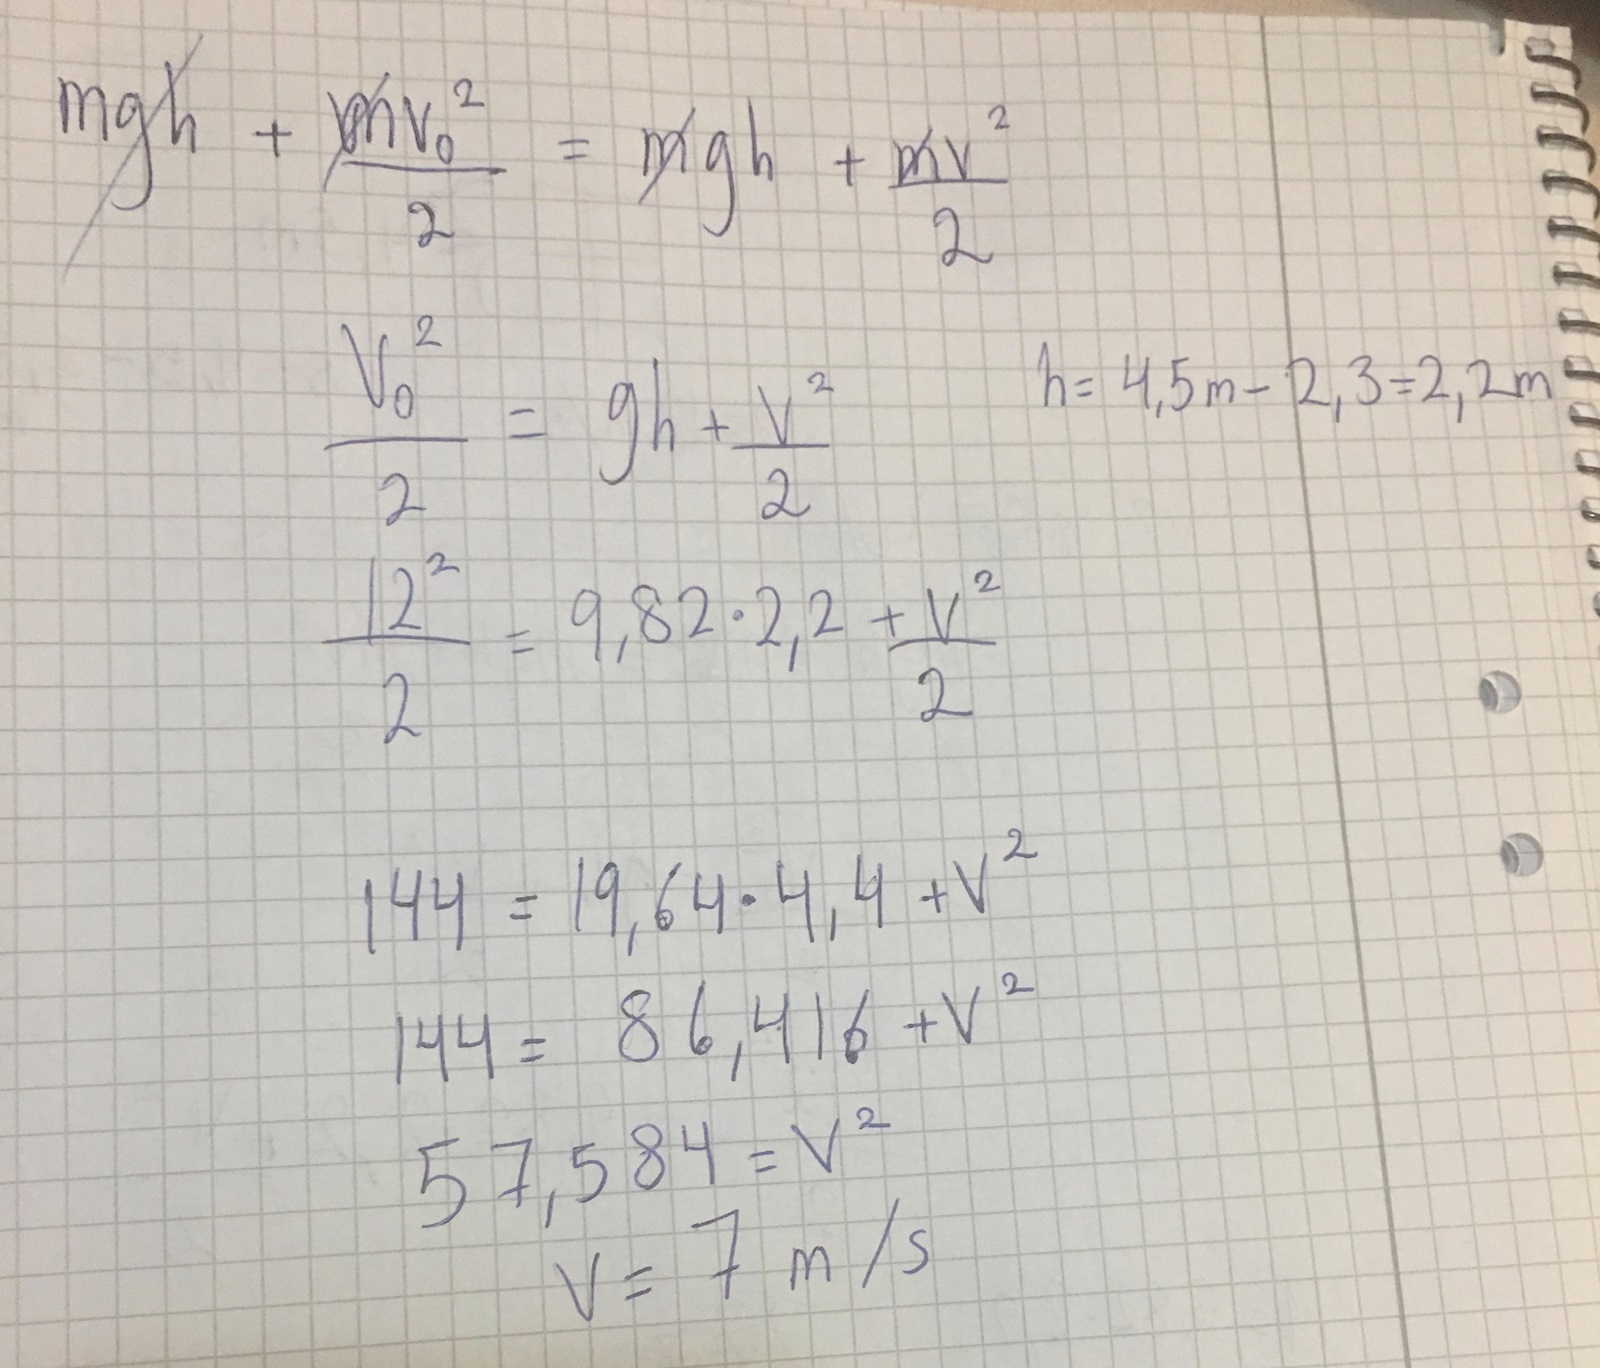 mgh + mv₀²/2 = mgh + mv²/2
v₀²/2 = gh + v²/2
h = 4,5m - 2,3 = 2,2m
12²/2 = 9,82 · 2,2 + v²/2
144 = 19,64 · 4,4 + v²
144 = 86,416 + v²
57,584 = v²
v = 7 m/s